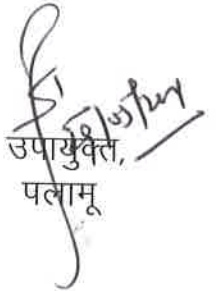 उपायुक्त,
पलामू